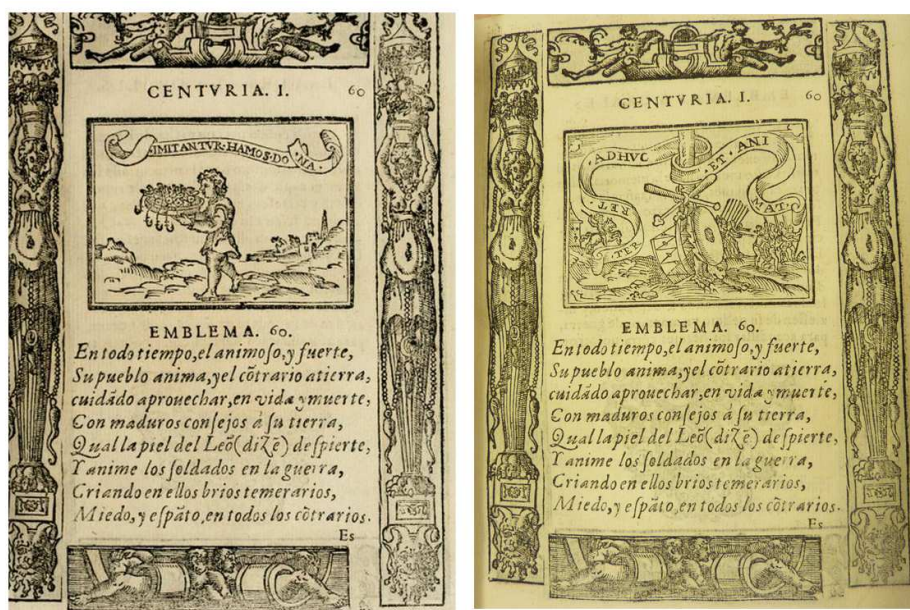 CENTVRIA. I. 60
·IMITANTVR·HAMOS·DO NA·
EMBLEMA. 60.
En todo tiempo,el animoſo,y fuerte,
Su pueblo anima,y el cõtrario atierra,
cuidãdo aprouechar,en vida y muerte,
Con maduros conſejos à ſu tierra,
Qual la piel del Leõ(dizẽ) deſpierte,
Y anime los ſoldados en la guerra,
Criando en ellos brios temerarios,
Miedo,y eſpãto,en todos los cõtrarios.
Es
CENTVRIA. I. 60
·ADHVC ET·ANI
MAT·
ET·RET
·TER
EMBLEMA. 60.
En todo tiempo,el animoſo,y fuerte,
Su pueblo anima,y el cõtrario atierra,
cuidãdo aprouechar,en vida y muerte,
Con maduros conſejos à ſu tierra,
Qual la piel del Leõ(dizẽ) deſpierte,
Y anime los ſoldados en la guerra,
Criando en ellos brios temerarios,
Miedo,y eſpãto,en todos los cõtrarios.
Es